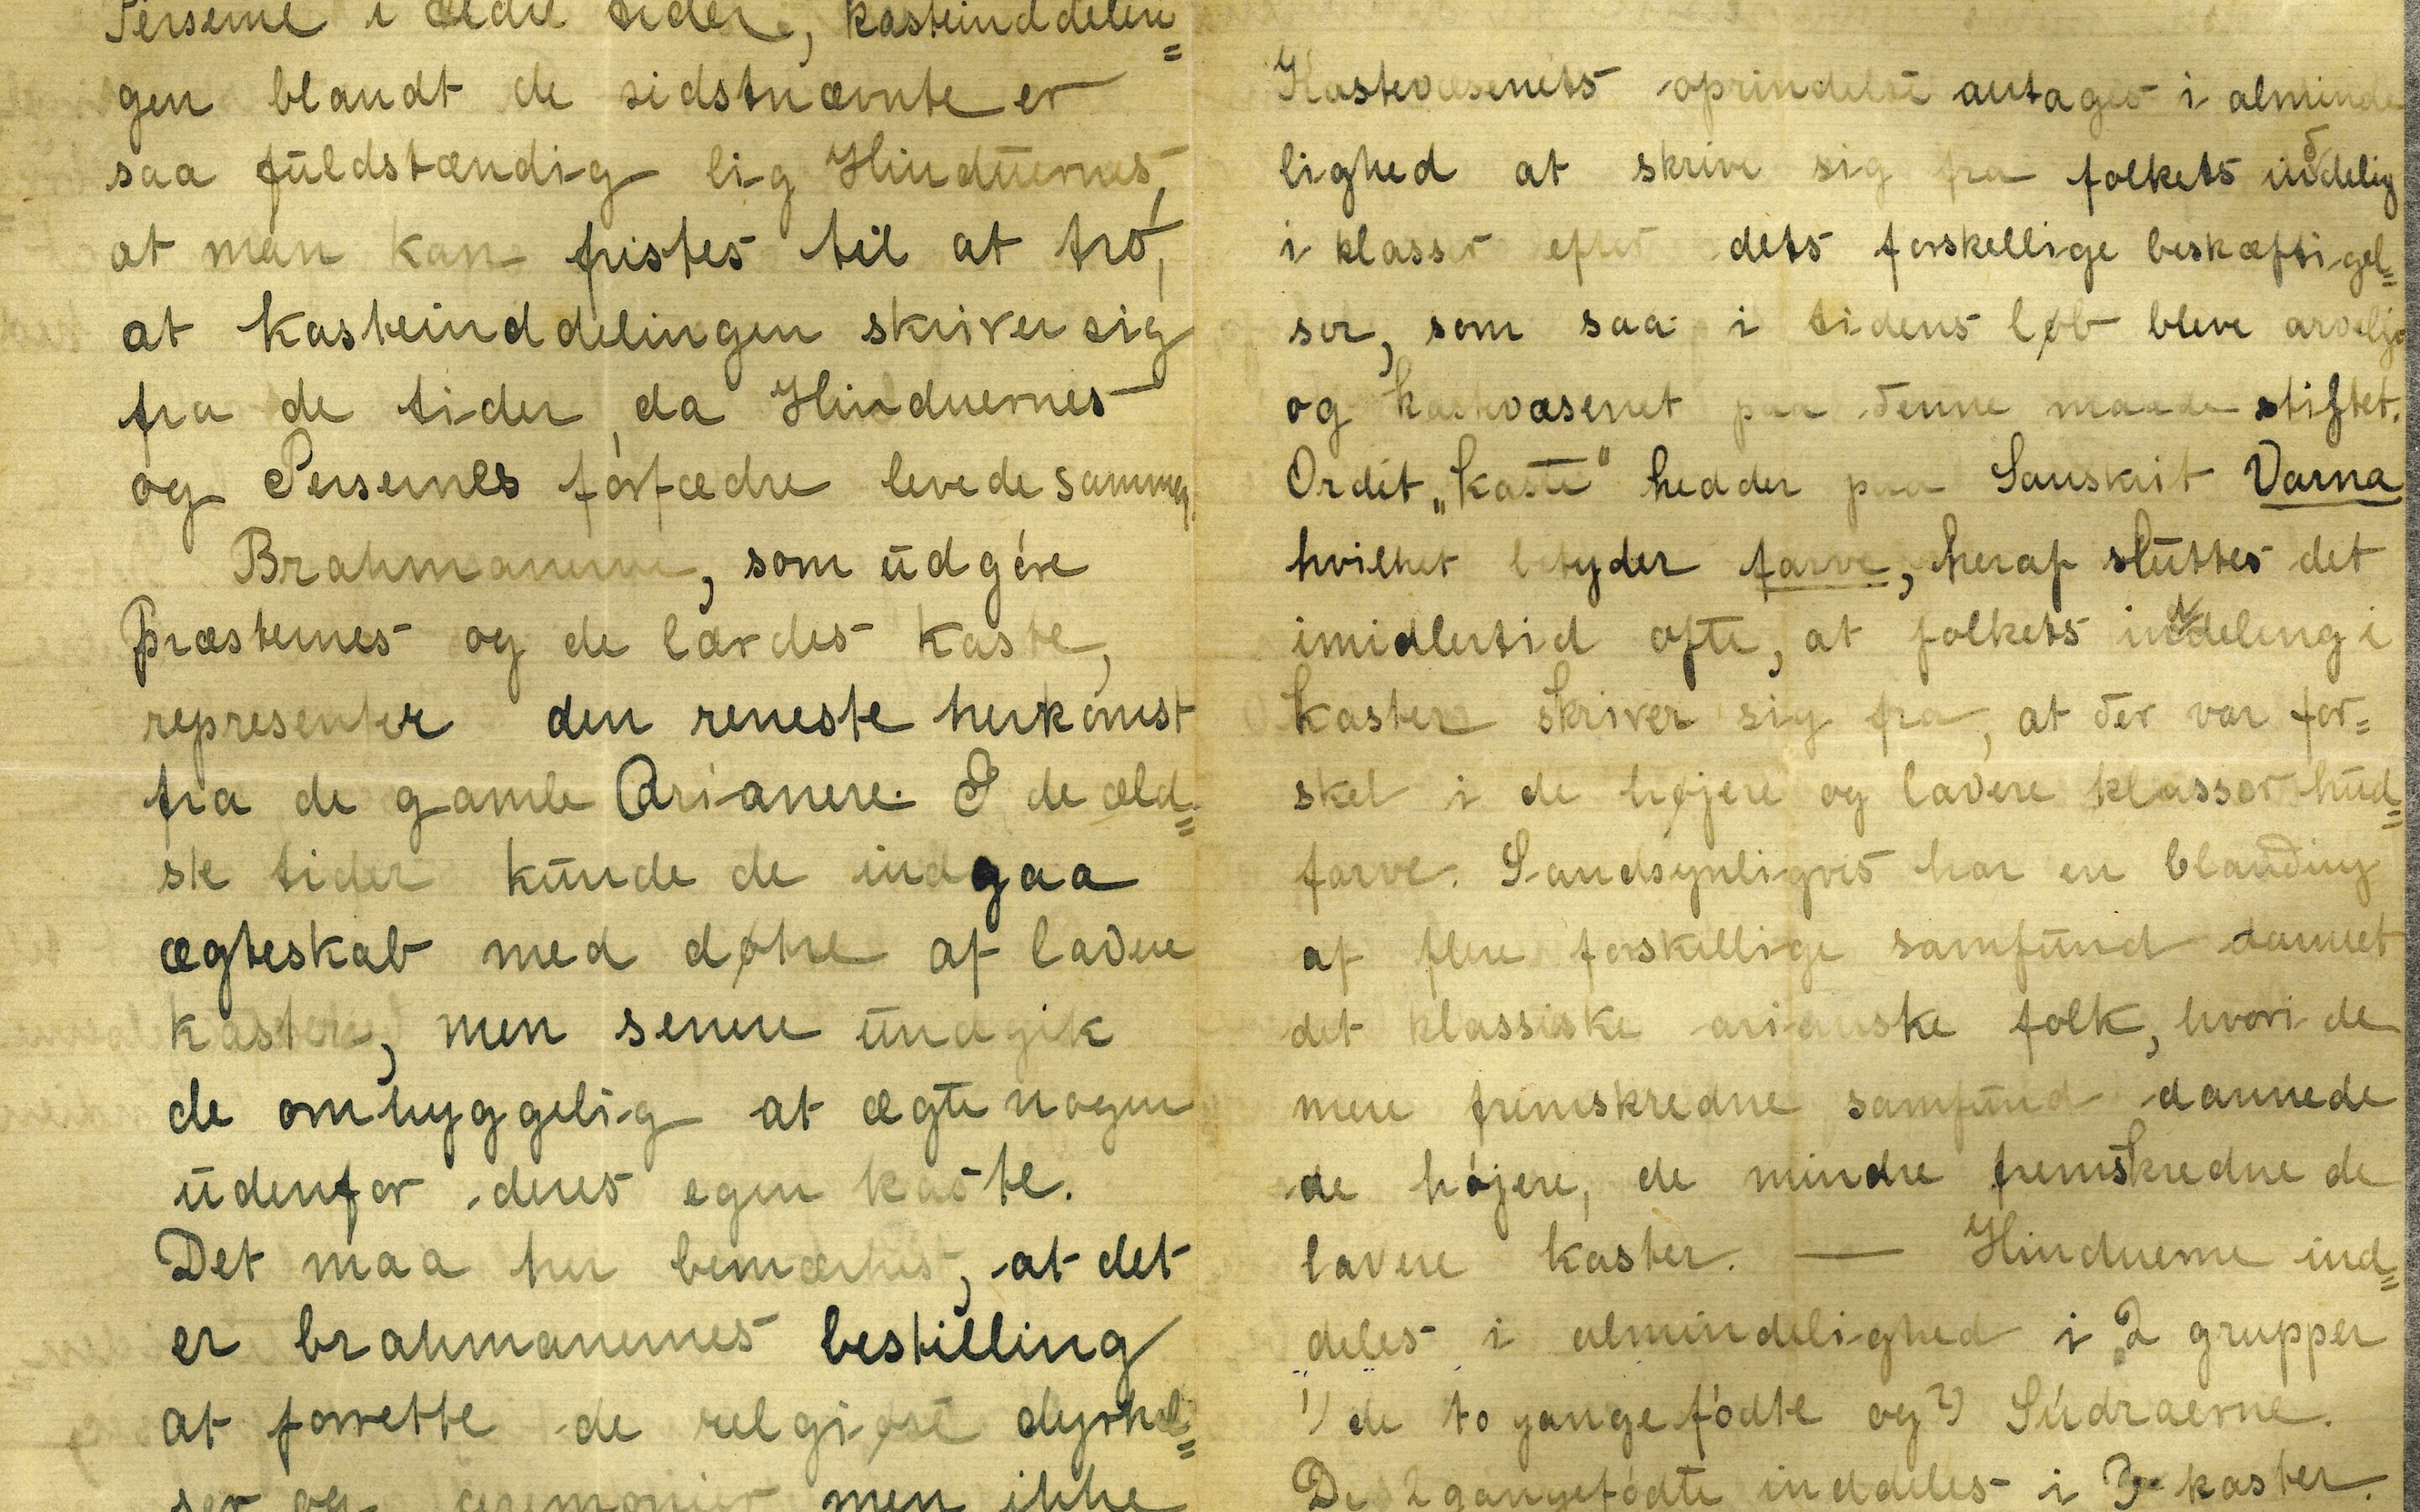 Perserne i ældre tider, kasteinddelin=
gen blandt de sidstnævnte er
saa fuldstændig lig Hinduernes,
at man kan fristes til at tro,
at kasteinddelingen skriver sig
fra de tider, da Hinduernes
og Persernes forfædre levede sammen.
Brahmanerne, som udgöre
Præsternes og de lærdes kaste,
representer den reneste herkomst
fra de gamle Arianere. I de æld=
ste tider kunde de indgaa
ægteskab med døtre af lavere
kaster, men senere undgik
de omhyggelig at ægte nogen
udenfor deres egen kaste.
Det maa her bemærkes, at det
er brahmanernes bestilling
at forrette de relgiøse dyrkel=
ser og ceremonier men ikke
Kastevæsenets oprindelse antages i alminde
lighed at skrive sig fra folkets inddelig
i klasser efter dets forskellige beskæftigel=
ser, som saa i tidens løb bleve arvelige
og kastevæsenet paa denne maade stiftet.
Ordet „kaste“ hedder paa Sanskrit Varna
hvilket betyder farve, heraf sluttes det
imidlertid ofte, at folkets inddeling i
kaster skriver sig fra, at der var for=
skel i de højere og lavere klasser hud=
farve. Sandsynligvis har en blanding
af flere forskellige samfund dannet
det klassiske arianske folk, hvori de
mere fremskredne samfund dannede
de højere, de mindre fremskredne de
lavere kaster. — Hinduerne ind=
deles i almindelighed i 2 grupper
1) de to gange födte og 2) Súdraerne.
De 2 gangefödte inddeles i 3 kaster.